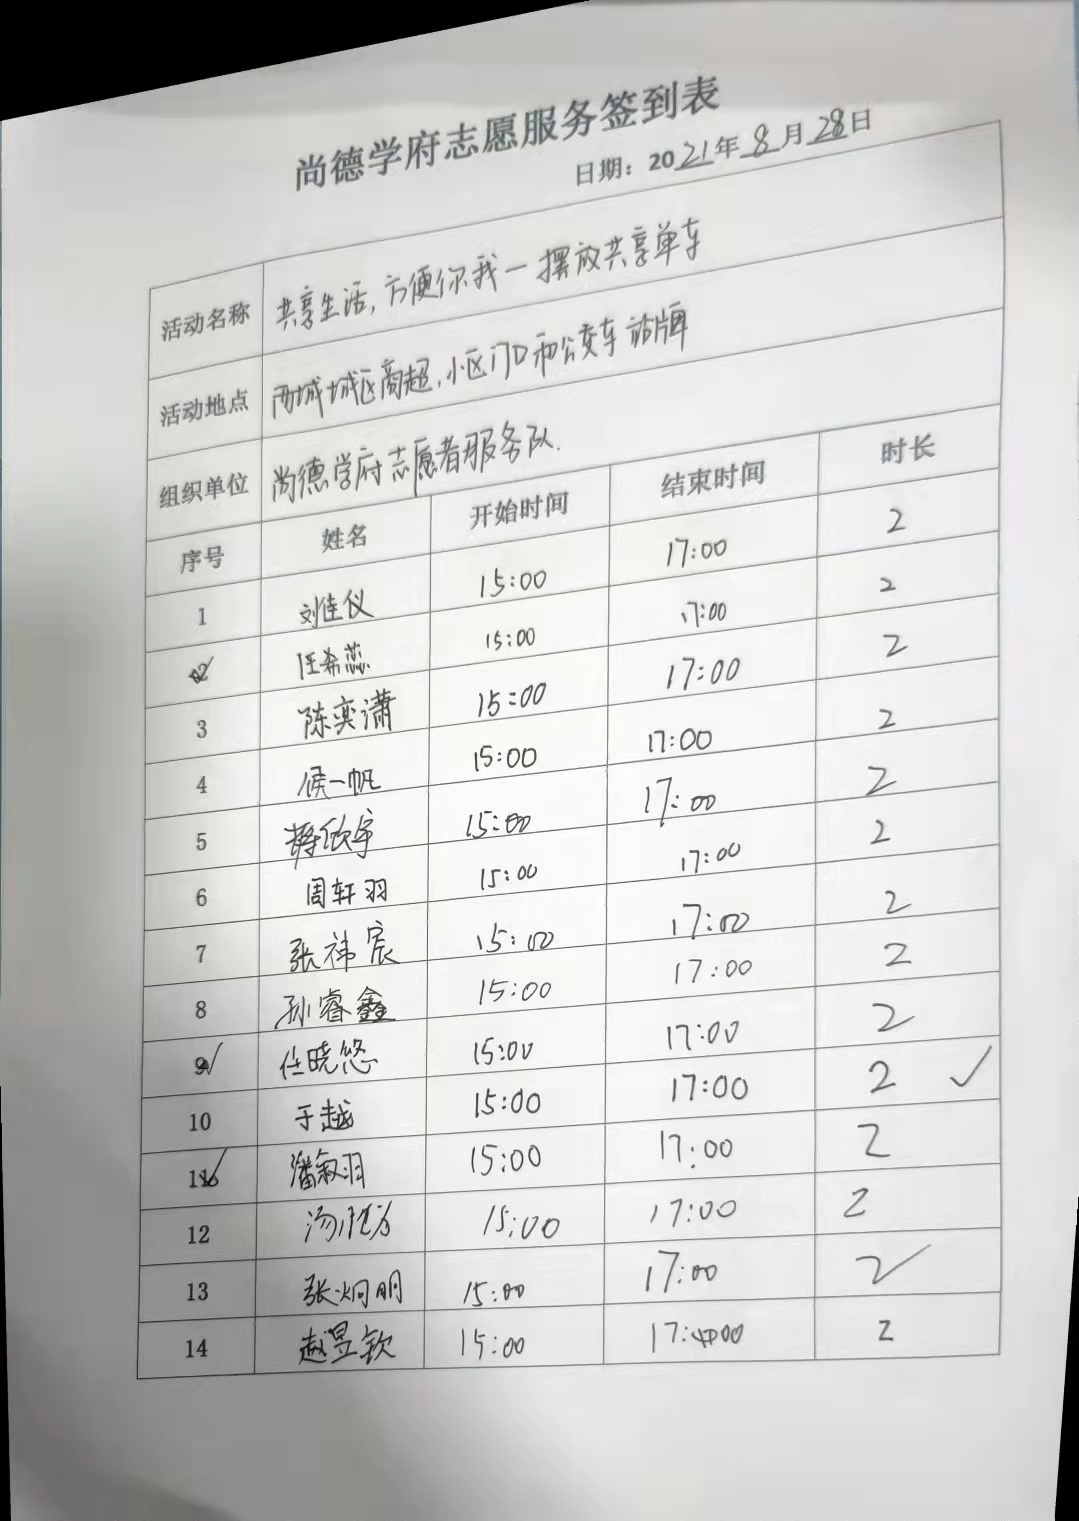 尚德学府志愿服务签到表
日期：2021年8月28日
活动名称 共享生活，方便你我一摆放共享单车
活动地点 西城城区商超，小区门口和公交车站牌
组织单位 尚德学府志愿者服务队.
序号 姓名 开始时间 结束时间 时长
1 刘佳仪 15:00 17:00 2
2 汪希蕊 15:00 17:00 2
3 陈奕潇 15:00 17:00 2
4 侯一帆 15:00 17:00 2
5 蒋欣宇 15:00 17:00 2
6 周轩羽 15:00 17:00 2
7 张祎宸 15:00 17:00 2
8 孙睿鑫 15:00 17:00 2
9 任晓悠 15:00 17:00 2
10 于越 15:00 17:00 2 ✓
11 潘叙羽 15:00 17:00 2
12 15:00 17:00 2
13 张炯明 15:00 17:00 2
14 赵昱钦 15:00 17:00 2